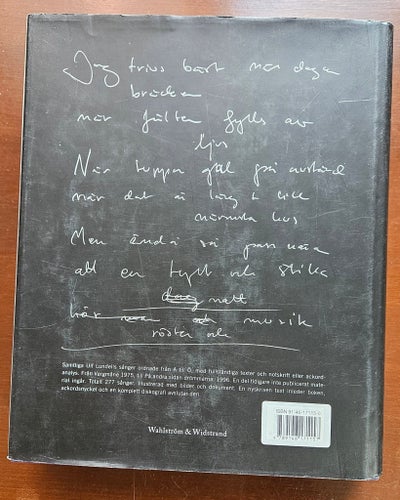 Jag trivs bäst när dagen
bräcker
när fälten fylls av
ljus
När tuppar gal på avstånd
när det är lång t till
närmsta hus
Men ändå så pass nära
att en tyst och stilla
dag natt
hör man och musik
röster och
Samtliga Ulf Lundells sånger ordnade från A till Ö, med fullständiga texter och notskrift eller ackord-
analys. Från Vargmåne 1975, till På andra sidan drömmarna, 1996. En del tidigare inte publicerat mate-
rial ingår. Totalt 277 sånger. Illustrerad med bilder och dokument. En nyskriven text inleder boken,
ackordsnyckel och en komplett diskografi avslutar den.
ISBN 91-46-17115-0
9 789146 171157
Wahlström & Widstrand